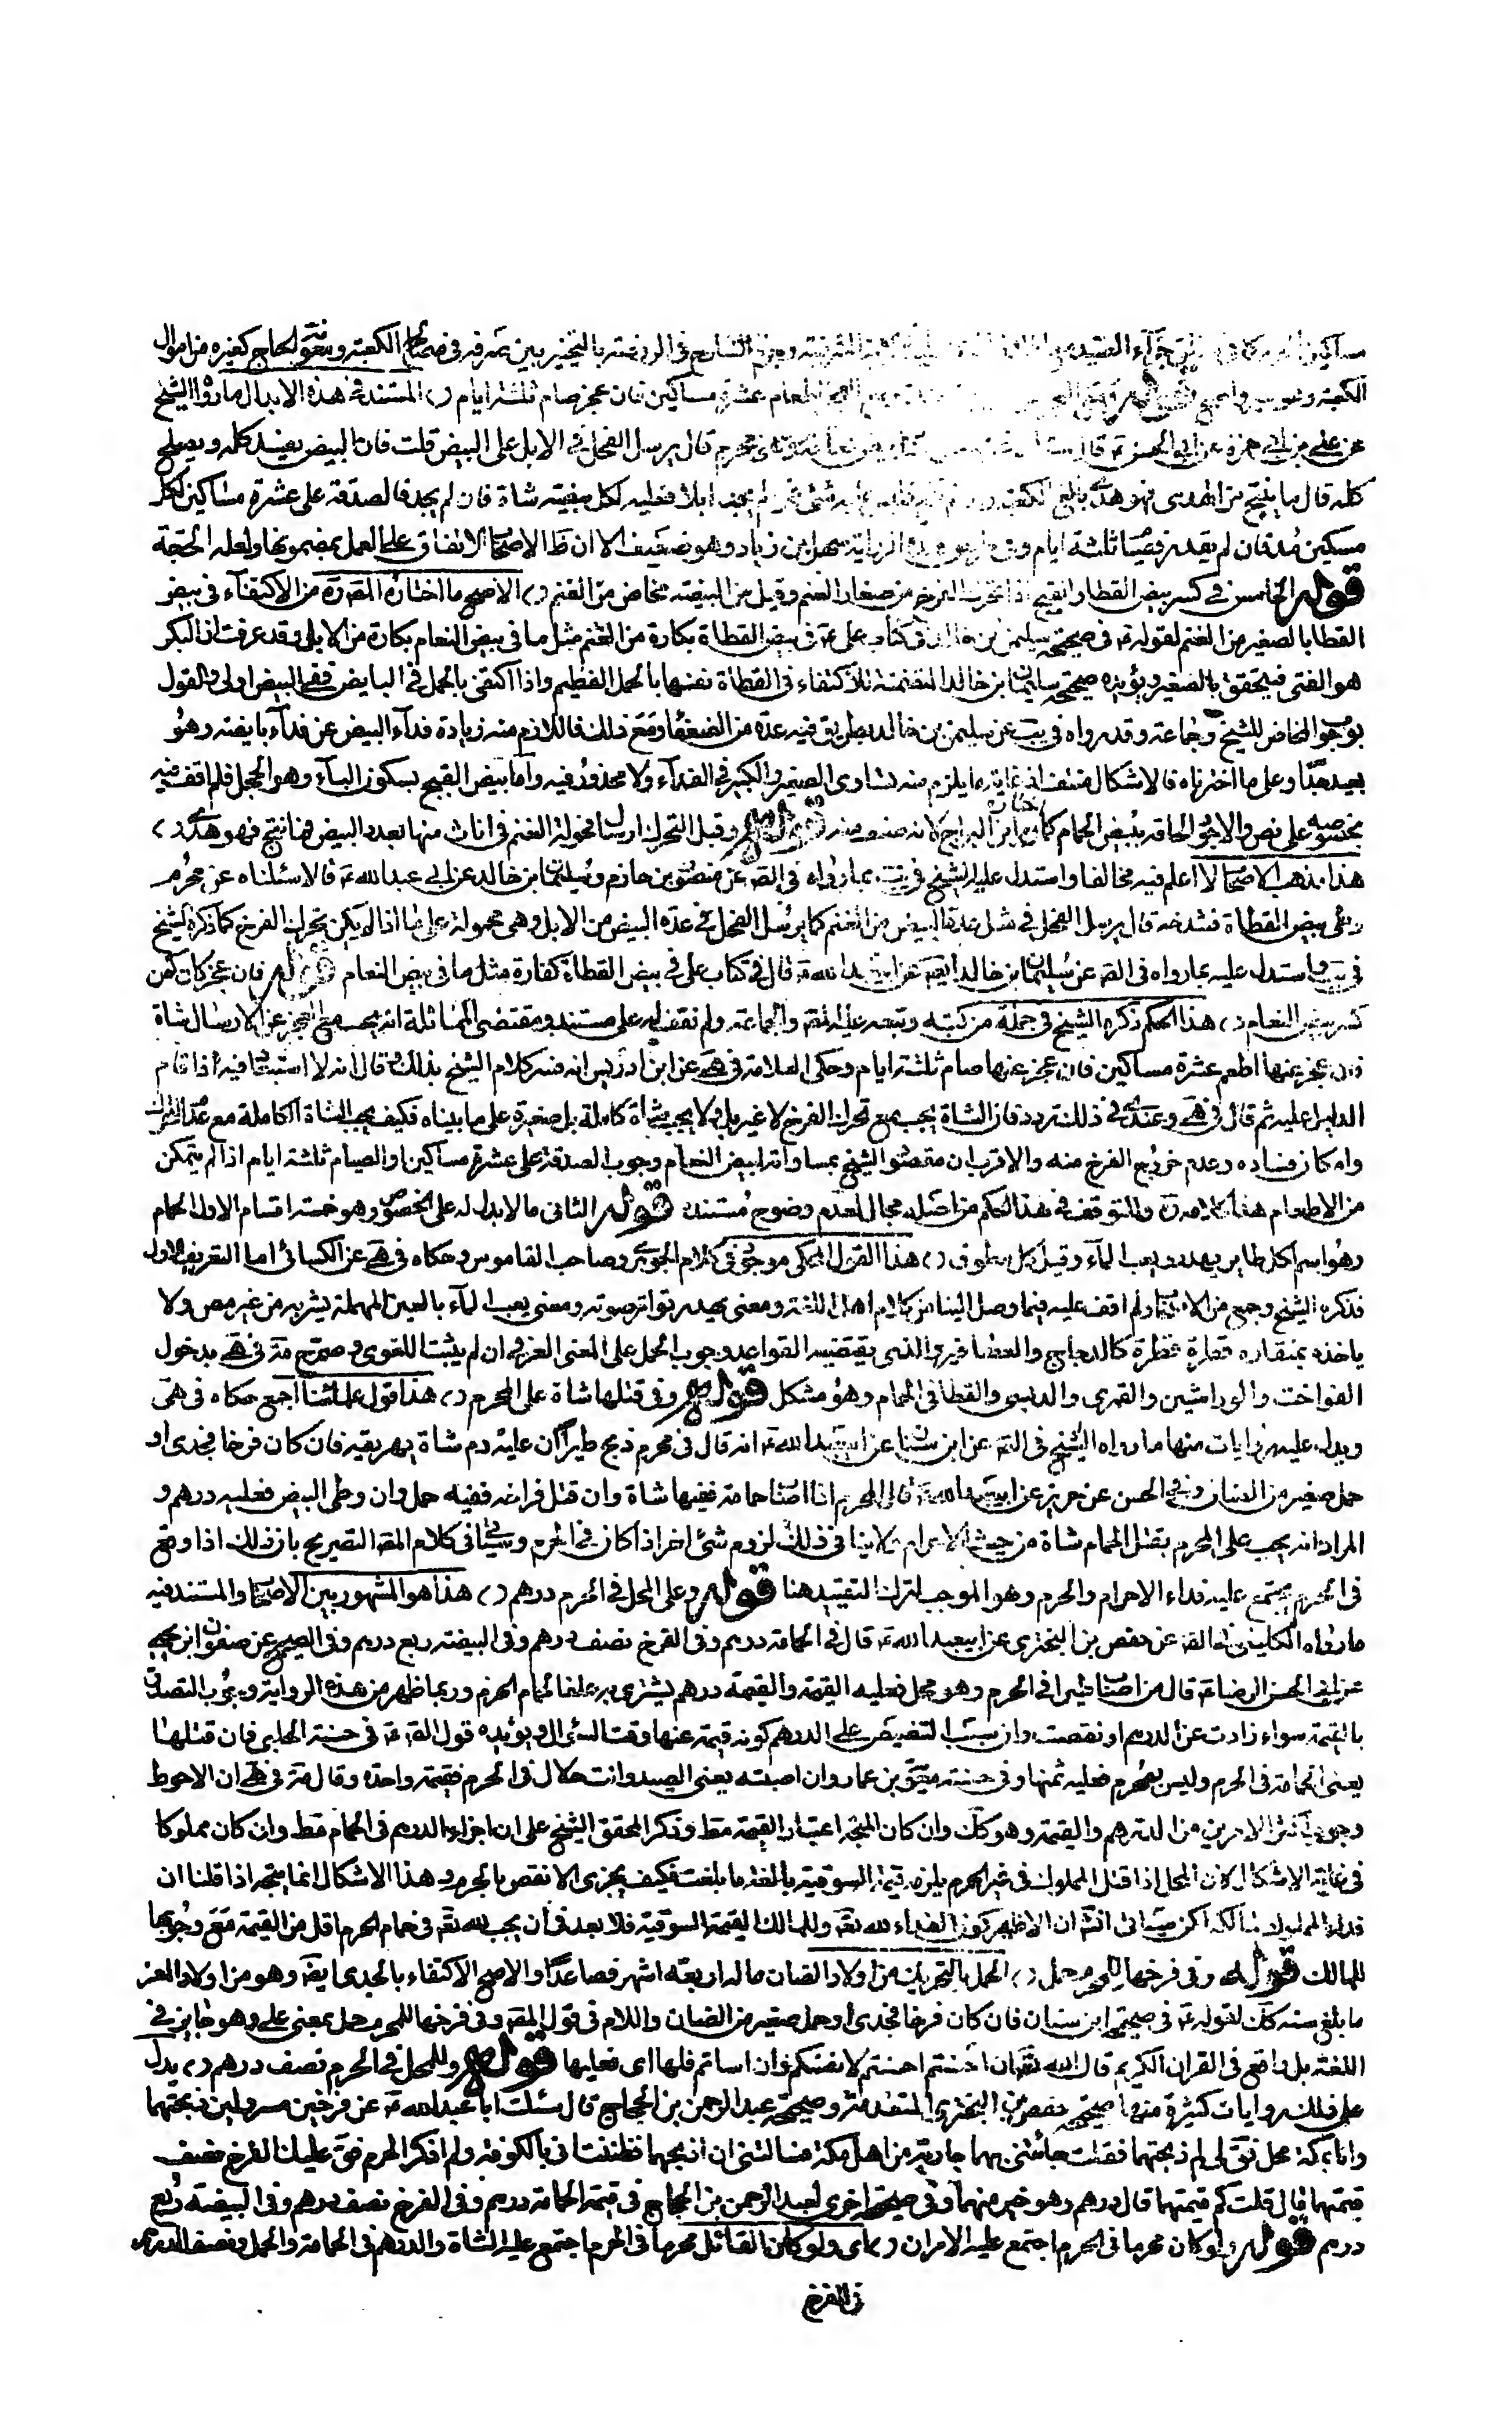 مساكين جزاء الصيد الشارح فى الروضة بالتخيير بين صرفه فى مصالح الكعبة ومعونة الحاج كغيره من اموال
الكعبة اطعام عشرة مساكين فان عجز صام ثلثة ايام المستند فى هذه الابدال ما رواه الشيخ
عن على بن ابى حمزة عن ابى الحسن ع قال محرم قال يرسل الفحل فى الابل على البيض قلت فان البيض يفسد كله ويصلح
كله قال ما ينتج من الهدى فهو هدى بالغ الكعبة فمن لم يجد ابلا فعليه لكل بيضة شاة فان لم يجد فالصدقة على عشرة مساكين لكل
مسكين مد فان لم يقدر فصيام ثلثة ايام وفى طريق هذه الرواية سهل بن زياد وهو ضعيف الا ان ظ الاصحاب الاتفاق على العمل بمضمونها ولعله الحجة
قوله الخامس فى كسر بيض القطا والقبج اذا تحرك الفرخ من صغار الغنم وقيل من البيضة مخاض من الغنم الاصح ما اختاره المصره من الاكتفاء فى بيض
القطا بالصغير من الغنم لقوله ع فى صحيحة سليمن بن خالد فى كتاب على ع فى بيض القطاة بكارة من الغنم مثل ما فى بيض النعام بكارة من الابل وقد عرفت ان البكر
هو الفتى فيتحقق بالصغير ويؤيده صحيحة سليمان ابن خالد المتضمنة للاكتفاء فى القطاة نفسها بالحمل الفطيم واذا اكتفى بالحمل فى البايض ففى البيض اولى والقول
بوجوب المخاض للشيخ وجماعة وقد رواه فى يب عن سليمن بن خالد بطريق فيه عدة من الضعفاء ومع ذلك فاللازم منه زيادة فداء البيض عن فداء بايضه وهو
بعيد جدا وعلى ما اخترناه فالاشكال منتف اذ غاية ما يلزم منه تساوى الصغير والكبير فى الفداء ولا محذور فيه واما بيض القبج بسكون الباء وهو الحجل فلم اقف فيه
بخصوصه على نص والاجود الحاقه ببيض الحمام كما اختاره ابن البراج لانه صنف منه قوله وقبل التحرك ارسال فحولة الغنم فى اناث منها بعدد البيض فما نتج فهو هدى
هذا مذهب الاصحاب لا اعلم فيه مخالفا واستدل عليه الشيخ فى يب بما رواه فى الصه عن منصور بن حازم وسليمان ابن خالد عن ابى عبد الله ع قالا سئلناه عن محرم
وطى بيض القطاة فشدخه قال يرسل الفحل فى مثل عدة البيض من الغنم كما يرسل الفحل فى عدة البيض من الابل وهى محمولة على ما اذا لم يكن تحرك الفرخ كما ذكره الشيخ
فى يب واستدل عليه بما رواه فى الصه عن سليمان بن خالد ايضه عن ابى عبد الله ع قال فى كتاب على فى بيض القطاة كفارة مثل ما فى بيض النعام قوله فان عجز كان كمن
كسر بيض النعام هذا الحكم ذكره الشيخ فى جملة من كتبه وتبعه عليه المصه والجماعة ولم نقف له على مستند ومقتضى المماثلة انه يجب مع العجز عن الارسال شاة
فان عجز عنها اطعم عشرة مساكين فان عجز عنها صام ثلثة ايام وحكى العلامة فى هى عن ابن ادريس انه فسر كلام الشيخ بذلك وقال انه لا استبعاد فيه اذا قام
الدليل عليه ثم قال فى هى وعندى فى ذلك تردد فان الشاة يجب مع تحرك الفرخ لا غير بل ولا يجب شاة كاملة بل صغيرة على ما بيناه فكيف يجب الشاة الكاملة مع عدم التحرك
وامكان فساده وعدم خروج الفرخ منه والاقرب ان مقصود الشيخ بمساواته لبيض النعام وجوب الصدقة على عشرة مساكين او الصيام ثلثة ايام اذا لم يتمكن
من الاطعام هذا كلامه ره والتوقف فى هذا الحكم من اصله مجال لعدم وضوح مستنده قوله الثانى ما لا بدل له على الخصوص وهو خمسة اقسام الاول الحمام
وهو اسم لكل طاير يهدر ويعب الماء وقيل كل مطوق هذا القول المحكى موجود فى كلام الجوهرى وصاحب القاموس وحكاه فى هى عن الكسائى اما التعريف الاول
فذكره الشيخ وجمع من الاصحاب ولم اقف عليه فيما وصل الينا من كلام اهل اللغة ومعنى يهدر تواتر صوته ومعنى يعب الماء بالعين المهملة يشربه من غير مص ولا
ياخذه بمنقاره قطرة قطرة كالدجاج والعصافير والذى يقتضيه القواعد وجوب الحمل على المعنى العرفى ان لم يثبت اللغوى وصرح مة فى هى بدخول
الفواخت والوراشين والقمرى والدبسى والقطا فى الحمام وهو مشكل قوله وفى قتلها شاة على المحرم هذا قول علمائنا اجمع حكاه فى هى
ويدل عليه روايات منها ما رواه الشيخ فى الصه عن ابن سنان عن ابى عبد الله ع انه قال فى محرم ذبح طيرا ان عليه دم شاة يهريقه فان كان فرخا فجدى او
حمل صغير من الضان وفى الحسن عن حريز عن ابى عبد الله ع قال المحرم اذا اصاب حمامة ففيها شاة وان قتل فراخه ففيه حمل وان وطى البيض فعليه درهم و
المراد انه يجب على المحرم بقتل الحمام شاة من حيث الاحرام فلا ينافى ذلك لزوم شئ اخر اذا كان فى الحرم وسيأتى فى كلام المصه التصريح بان ذلك اذا وقع
فى الحرم يجتمع عليه فداء الاحرام والحرم وهو الموجب لترك التقييد هنا قوله وعلى المحل فى الحرم درهم هذا هو المشهور بين الاصحاب والمستند فيه
ما رواه الكلينى فى الصه عن حفص بن البخترى عن ابيعبد الله ع قال فى الحمامة درهم وفى الفرخ نصف درهم وفى البيضة ربع درهم وفى الصحيح عن صفوان ابن يحيى
عن ابى الحسن الرضا ع قال من اصاب طيرا فى الحرم وهو محل فعليه القيمة والقيمة درهم يشترى به علفا لحمام الحرم وربما ظهر من هذه الرواية وجوب التصدق
بالقيمة سواء زادت عن الدرهم او نقصت وان سبب التنصيص على الدرهم كونه قيمة عنها وقت السئوال ويؤيده قول الصه ع فى حسنة الحلبى فان قتلها
يعنى الحمامة فى الحرم وليس بمحرم فعليه ثمنها وفى حسنة معوية بن عمار وان اصبته يعنى الصيد وانت حلال فى الحرم فقيمة واحدة وقال مة فى هى ان الاحوط
وجوب اكثر الامرين من الدرهم والقيمة وهو كك وان كان المتجه اعتبار القيمة مط وذكر المحقق الشيخ على ان اجزاء الدرهم فى الحمام مط وان كان مملوكا
فى غاية الاشكال لان المحل اذا قتل المملوك فى غير الحرم يلزمه قيمته السوقية بالغة ما بلغت فكيف يجزى الانقص بالحرم وهذا الاشكال انما يتجه اذا قلنا ان
فداء المملوك لمالكه لكن سيأتى انش ان الاظهر كون الفداء لله تعه وللمالك القيمة السوقية فلا بعد فى ان يجب لله تعه فى حمام الحرم اقل من القيمة مع وجوبها
للمالك قوله وفى فرخها للمحرم حمل الحمل بالتحريك من اولاد الضان ما له اربعة اشهر فصاعدا والاصح الاكتفاء بالجدى ايضه وهو من اولاد المعز
ما بلغ سنه كك لقوله ع فى صحيحة ابن سنان فان كان فرخا فجدى او حمل صغير من الضان واللام فى قول المصه وفى فرخها للمحرم حمل بمعنى على وهو جايز فى
اللغة بل واقع فى القران الكريم قال الله تعه ان احسنتم احسنتم لانفسكم وان اساتم فلها اى فعليها قوله وللمحل فى الحرم نصف درهم يدل
على ذلك روايات كثيرة منها صحيحة حفص بن البخترى المتقدمة وصحيحة عبد الرحمن بن الحجاج قال سئلت ابا عبد الله ع عن فرخين مسرولين ذبحتهما
وانا بمكة محل فقى لى لم ذبحتهما فقلت جائتنى بهما جارية من اهل مكة فسالتنى ان اذبحهما فظننت انى بالكوفة ولم اذكر الحرم فق عليك الفرخ نصف
قيمتها قال قلت كم قيمتها قال درهم وهو خير منهما وفى صحيحة اخرى لعبد الرحمن بن الحجاج فى قيمة الحمامة درهم وفى الفرخ نصف درهم وفى البيضة ربع
درهم قوله ولو كان محرما فى الحرم اجتمع عليه الامران اى ولو كان القاتل محرما فى الحرم اجتمع عليه الشاة والدرهم فى الحمامة والحمل ونصف الدرهم
فى الفرخ